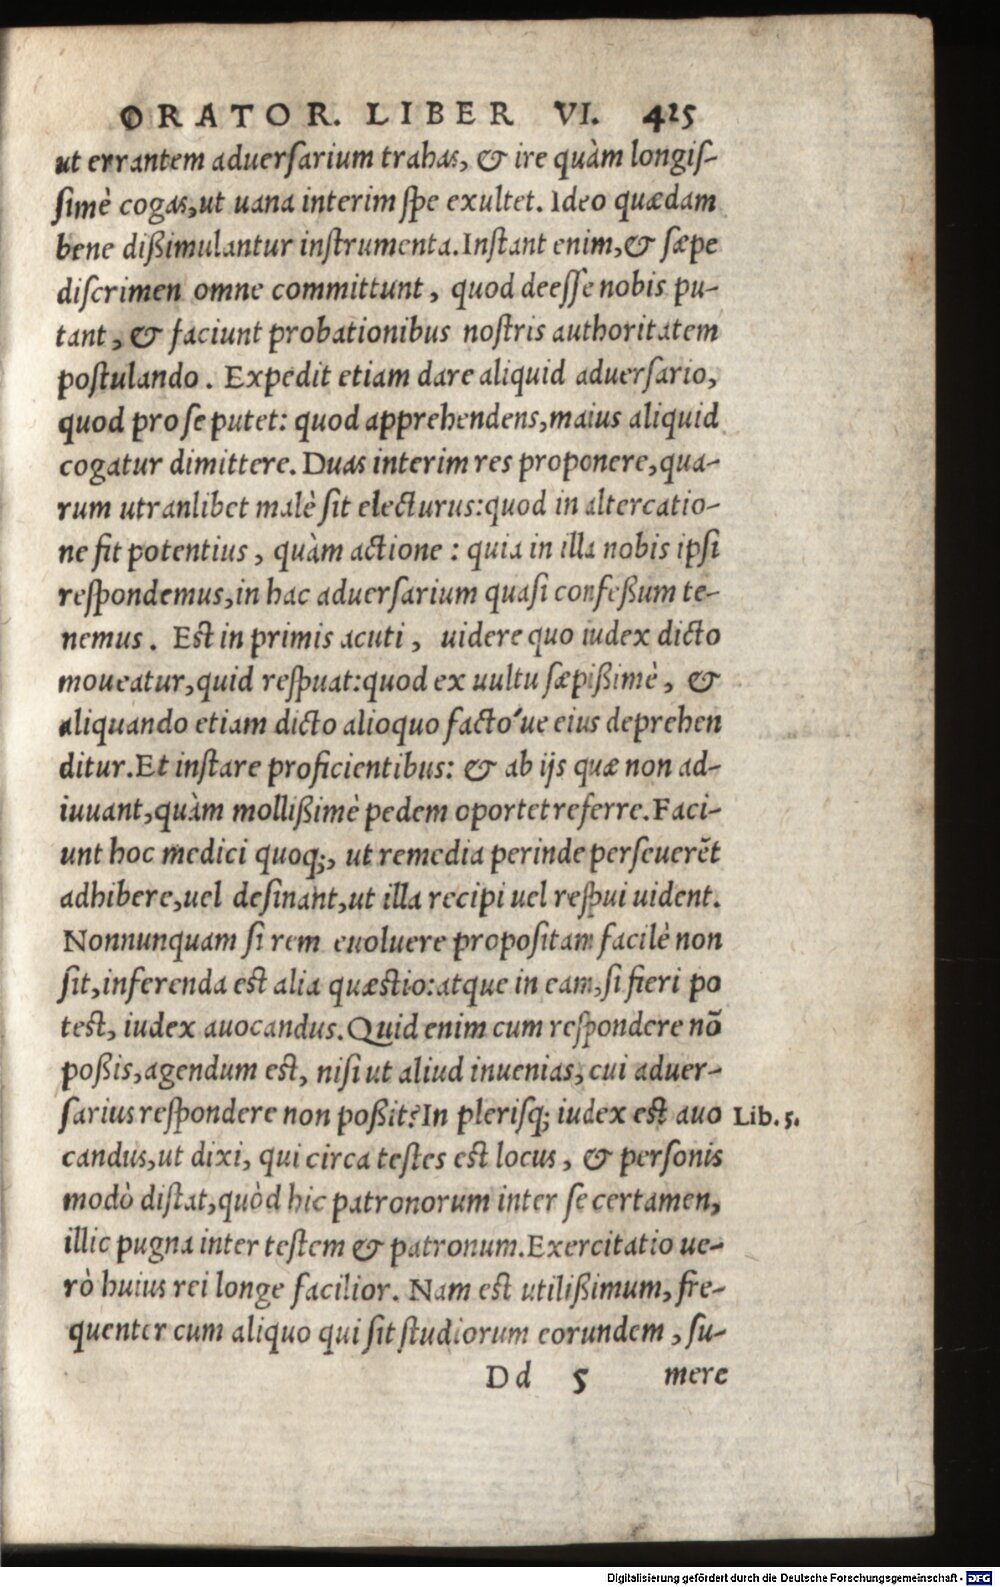 ORATOR. LIBER VI. 425
ut errantem aduerſarium trahas, & ire quàm longiſ-
ſimè cogas,ut uana interim ſpe exultet. Ideo quædam
bene dißimulantur inſtrumenta.Inſtant enim,& ſæpe
diſcrimen omne committunt, quod deeſſe nobis pu-
tant, & faciunt probationibus noſtris authoritatem
poſtulando. Expedit etiam dare aliquid aduerſario,
quod pro ſe putet: quod apprehendens,maius aliquid
cogatur dimittere. Duas interim res proponere,qua-
rum utranlibet malè ſit electurus:quod in altercatio-
ne fit potentius, quàm actione: quia in illa nobis ipſi
reſpondemus,in hac aduerſarium quaſi confeßum te-
nemus. Est in primis acuti, uidere quo iudex dicto
moueatur,quid reſpuat:quod ex uultu ſæpißimè, &
aliquando etiam dicto alioquo facto'ue eius deprehen
ditur.Et inſtare proficientibus: & ab ijs quæ non ad-
iuuant,quàm mollißimè pedem oportet referre.Faci-
unt hoc medici quoq;, ut remedia perinde perſeuerẽt
adhibere,uel deſinant,ut illa recipi uel reſpui uident.
Nonnunquam ſi rem euoluere propoſitam facilè non
ſit,inferenda est alia quæstio:atque in eam,ſi fieri po
test, iudex auocandus.Quid enim cum reſpondere nõ
poßis,agendum est, niſi ut aliud inuenias, cui aduer-
ſarius reſpondere non poßit?In pleriſq; iudex est auo
Lib. 5.
candus,ut dixi, qui circa teſtes est locus, & perſonis
modò diſtat,quòd hic patronorum inter ſe certamen,
illic pugna inter teſtem & patronum.Exercitatio ue-
rò huius rei longe facilior. Nam est utilißimum, fre-
quenter cum aliquo qui ſit ſtudiorum eorundem, ſu-
Dd 5 mere
Digitalisierung gefördert durch die Deutsche Forschungsgemeinschaft - DFG